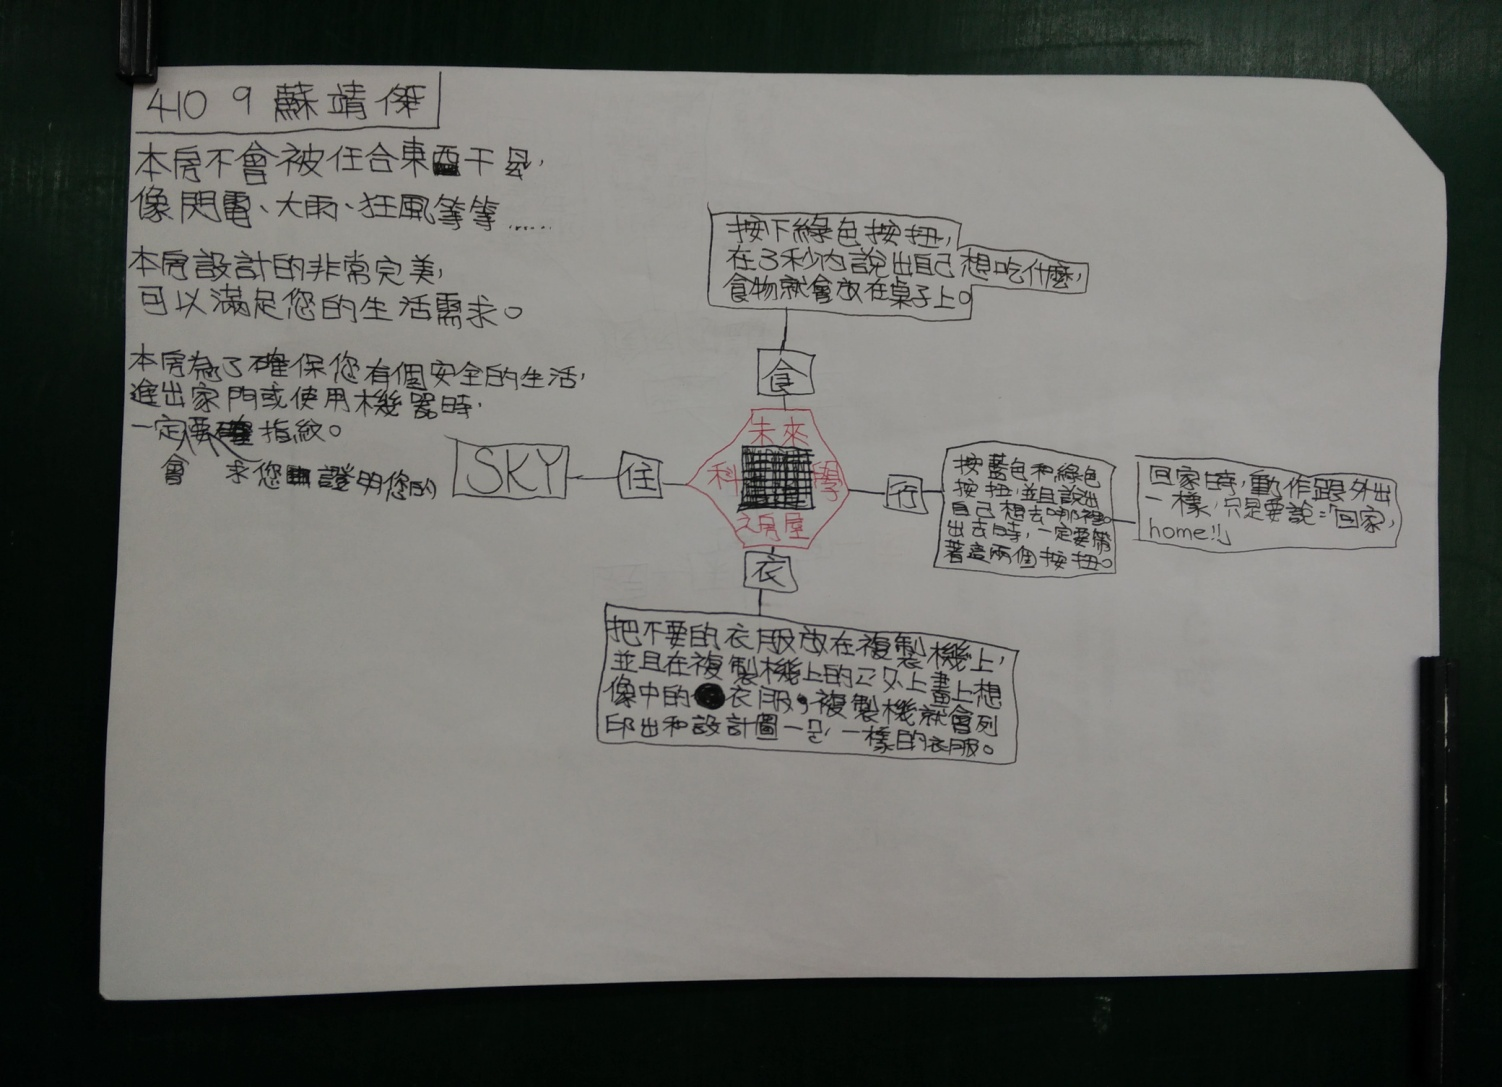 410 9 蘇靖傑
本房不會被任合東西干
像閃電、大雨、狂風等等......
本房設計的非常完美,
可以滿足您的生活需求。
本房為了確保您有個安全的生活,
進出家門或使用機器時,
一定要 指紋。
會 求您 證明您的
SKY
住
按下綠色按扭,
在3秒內說出自己想吃什麼,
食物就會放在桌子上。
食
未來
科 學
之房屋
行
按藍色和綠色
按扭,並且說出
自己想去哪裡。
出去時,一定要帶
著這兩個按扭。
回家時,動作跟外出
一樣,只是要說:「回家,
home!!」
衣
把不要的衣服放在複製機上,
並且在複製機上的 上畫上想
像中的衣服,複製機就會列
印出和設計圖一 一樣的衣服。